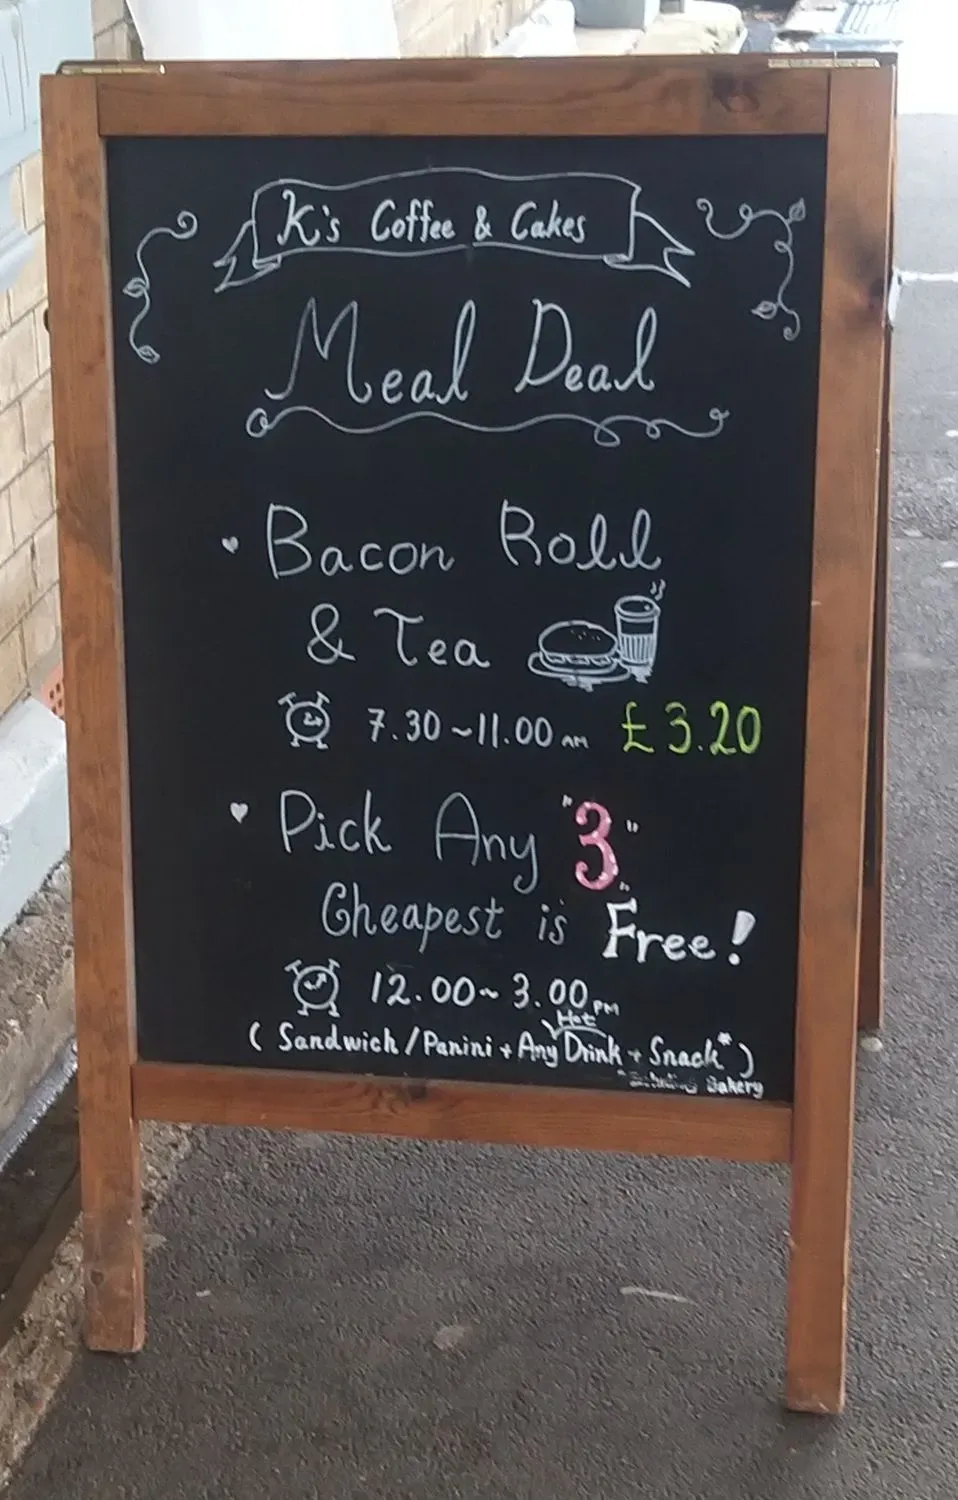 K's Coffee & Cakes
Meal Deal
Bacon Roll
& Tea
7.30~11.00 AM £3.20
Pick Any "3"
Cheapest is Free!
12.00~3.00 PM
Hot
(Sandwich/Panini + Any Drink + Snack*)
Bakery